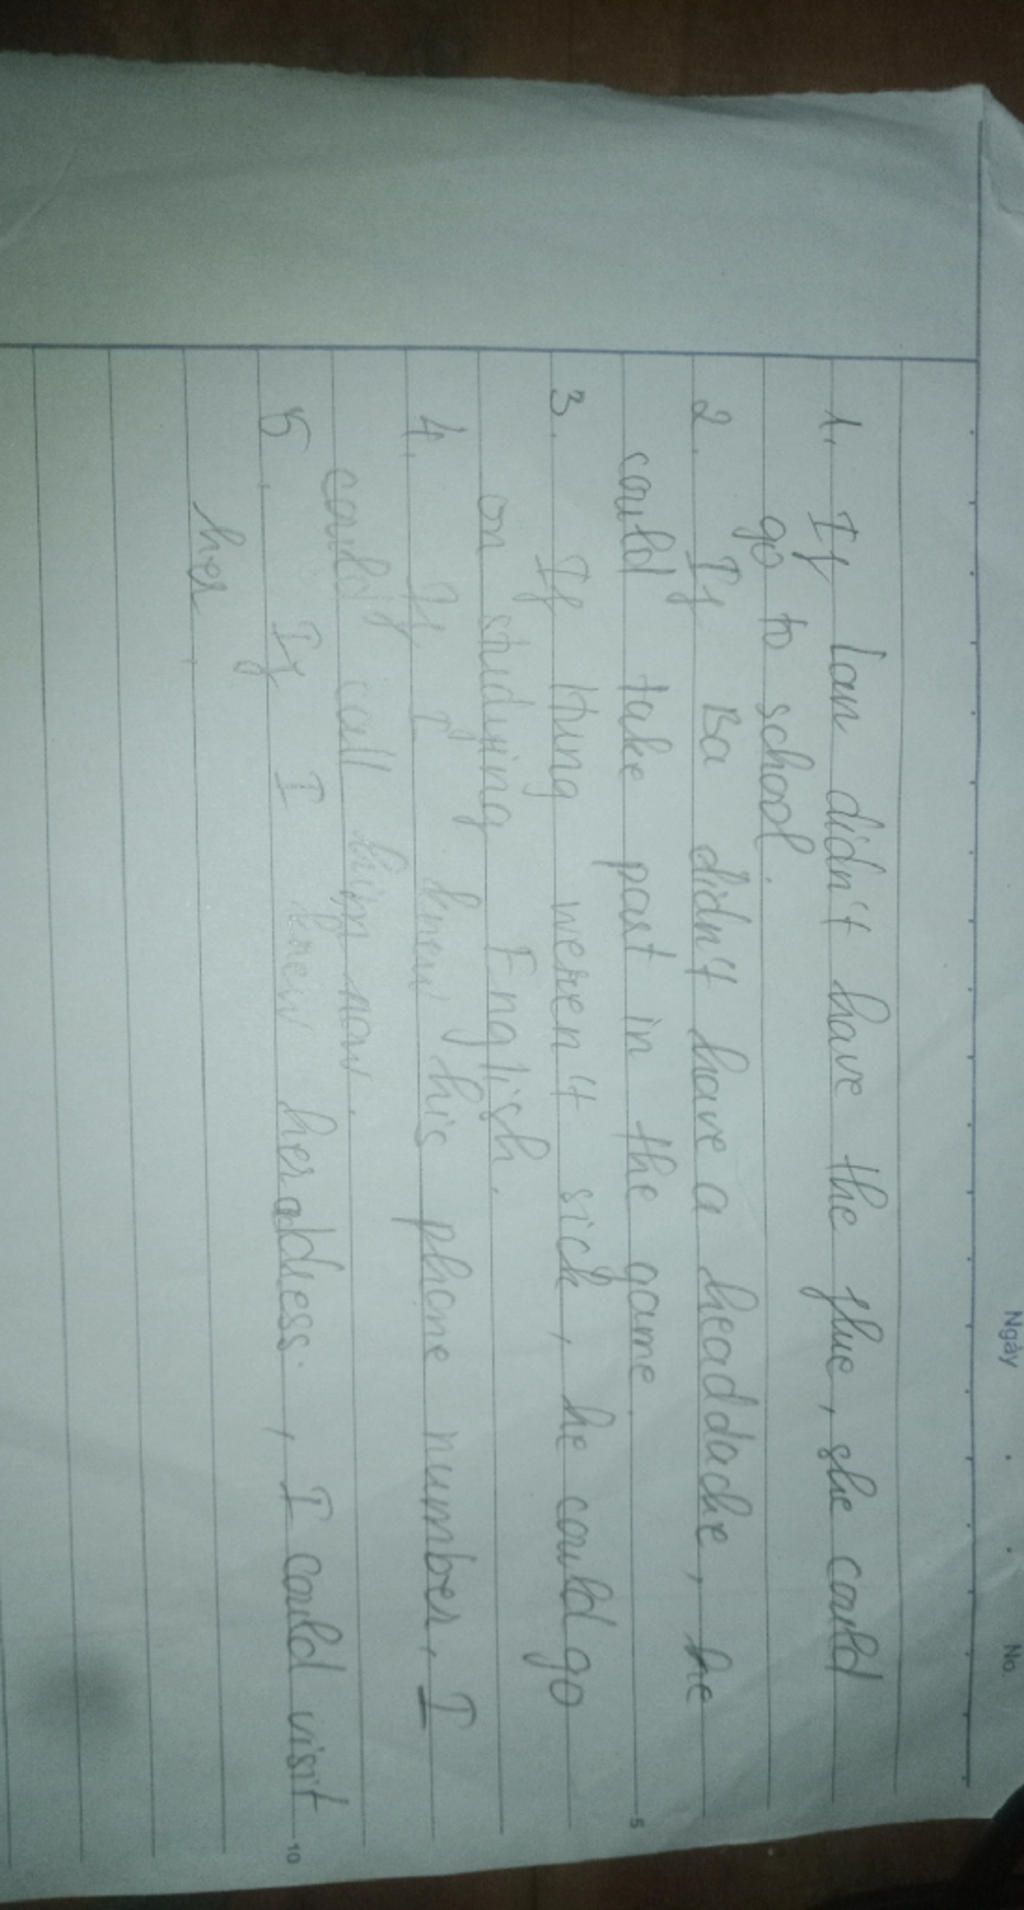 Ngày . . No.
1. If lan didn't have the flue, she could
go to school.
2. If Ba didn't have a headdache, he
could take past in the game.
5
3. If Hung weren't sick, he could go
on studying English.
4. If I knew his phone number, I
could call him now.
5. If I knew her address, I could visit
10
her